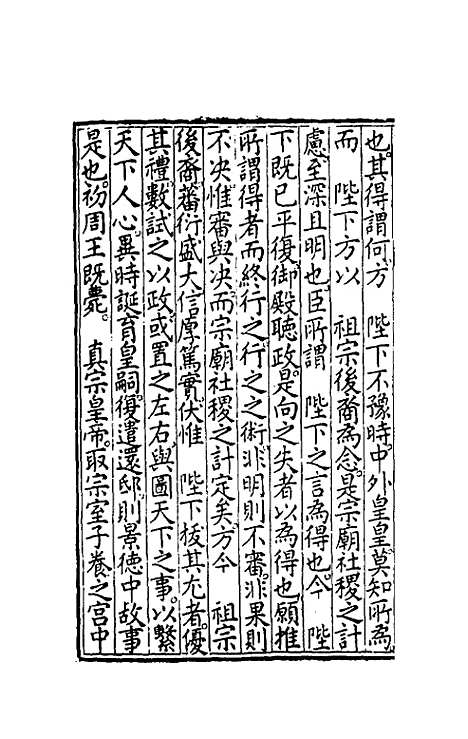 也其得謂何方　陛下不豫時中外皇皇莫知所為
而　陛下方以　祖宗後裔為念是宗廟社稷之計
慮至深且明也臣所謂　陛下之言為得也今　陛
下既已平復御殿聽政是向之失者以為得也願推
所謂得者而終行之行之之術非明則不審非果則
不决惟審與决而宗廟社稷之計定矣方今　祖宗
後裔蕃衍盛大信厚篤實伏惟　陛下拔其尤者優
其禮數試之以政或置之左右與圖天下之事以繫
天下人心異時誕育皇嗣復遣還邸則景德中故事
是也初周王既薨　真宗皇帝取宗室子養之宮中